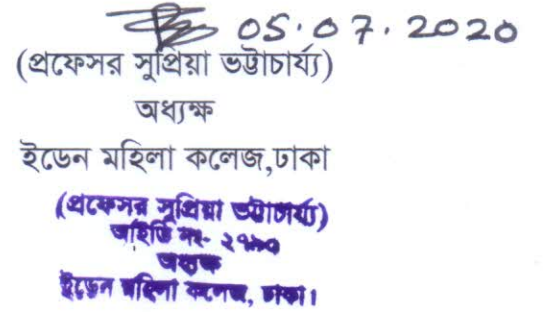 05.07.2020
(প্রফেসর সুপ্রিয়া ভট্টাচার্য্য)
অধ্যক্ষ
ইডেন মহিলা কলেজ,ঢাকা
(প্রফেসর সুপ্রিয়া ভট্টাচার্য্য)
আইডি নং-
অধ্যক্ষ
ইডেন মহিলা কলেজ, ঢাকা।